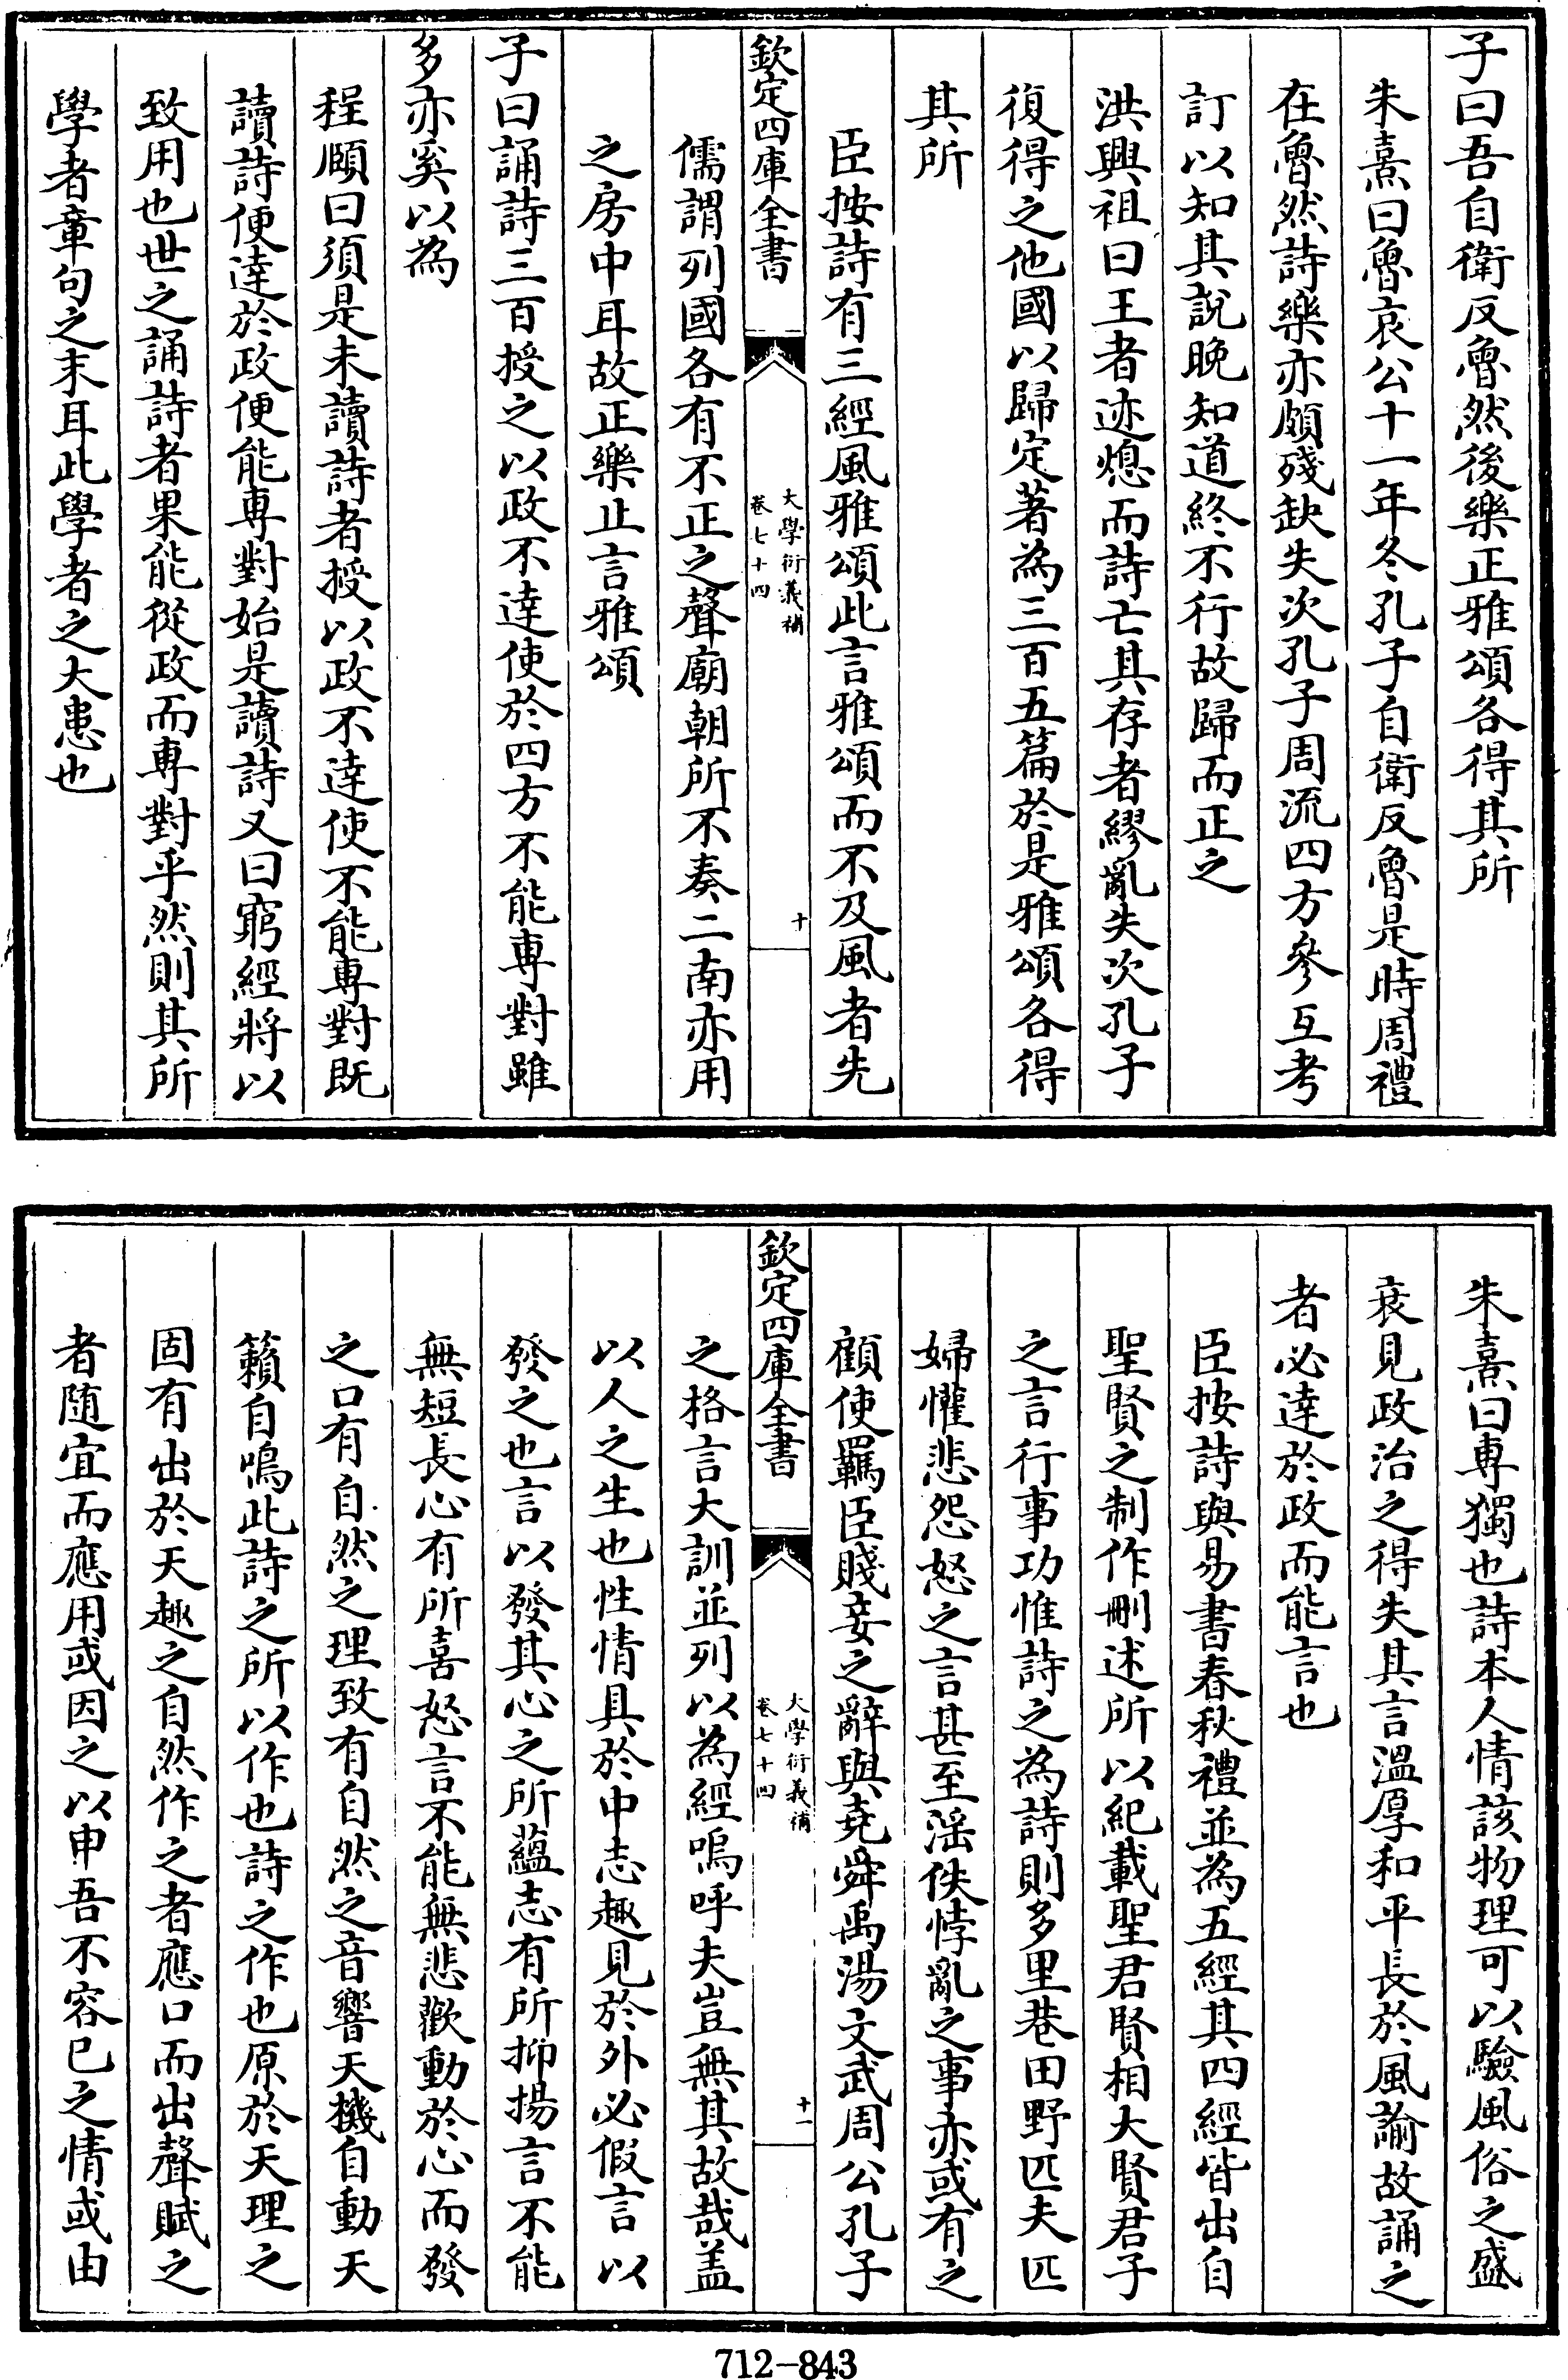 子曰吾自衛反魯然後樂正雅頌各得其所
朱熹曰魯哀公十一年冬孔子自衛反魯是時周禮
在魯然詩樂亦頗殘缺失次孔子周流四方參互考
訂以知其說晚知道終不行故歸而正之
洪興祖曰王者迹熄而詩亡其存者繆亂失次孔子
復得之他國以歸定著為三百五篇於是雅頌各得
其所
臣按詩有三經風雅頌此言雅頌而不及風者先
欽定四庫全書
大學衍義補
卷七十四
十
儒謂列國各有不正之聲廟朝所不奏二南亦用
之房中耳故正樂止言雅頌
子曰誦詩三百授之以政不達使於四方不能專對雖
多亦奚以為
程頤曰須是未讀詩者授以政不達使不能專對既
讀詩便達於政便能專對始是讀詩又曰窮經將以
致用也世之誦詩者果能從政而專對乎然則其所
學者章句之末耳此學者之大患也
朱熹曰專獨也詩本人情該物理可以驗風俗之盛
衰見政治之得失其言溫厚和平長於風諭故誦之
者必達於政而能言也
臣按詩與易書春秋禮並為五經其四經皆出自
聖賢之制作刪述所以紀載聖君賢相大賢君子
之言行事功惟詩之為詩則多里巷田野匹夫匹
婦懽悲怨怒之言甚至淫佚悖亂之事亦或有之
顧使羈臣賤妾之辭與堯舜禹湯文武周公孔子
欽定四庫全書
大學衍義補
卷七十四
十一
之格言大訓並列以為經嗚呼夫豈無其故哉盖
以人之生也性情具於中志趣見於外必假言以
發之也言以發其心之所蘊志有所抑揚言不能
無短長心有所喜怒言不能無悲歡動於心而發
之口有自然之理致有自然之音響天機自動天
籟自鳴此詩之所以作也詩之作也原於天理之
固有出於天趣之自然作之者應口而出聲賦之
者随宜而應用或因之以申吾不容已之情或由
712-843